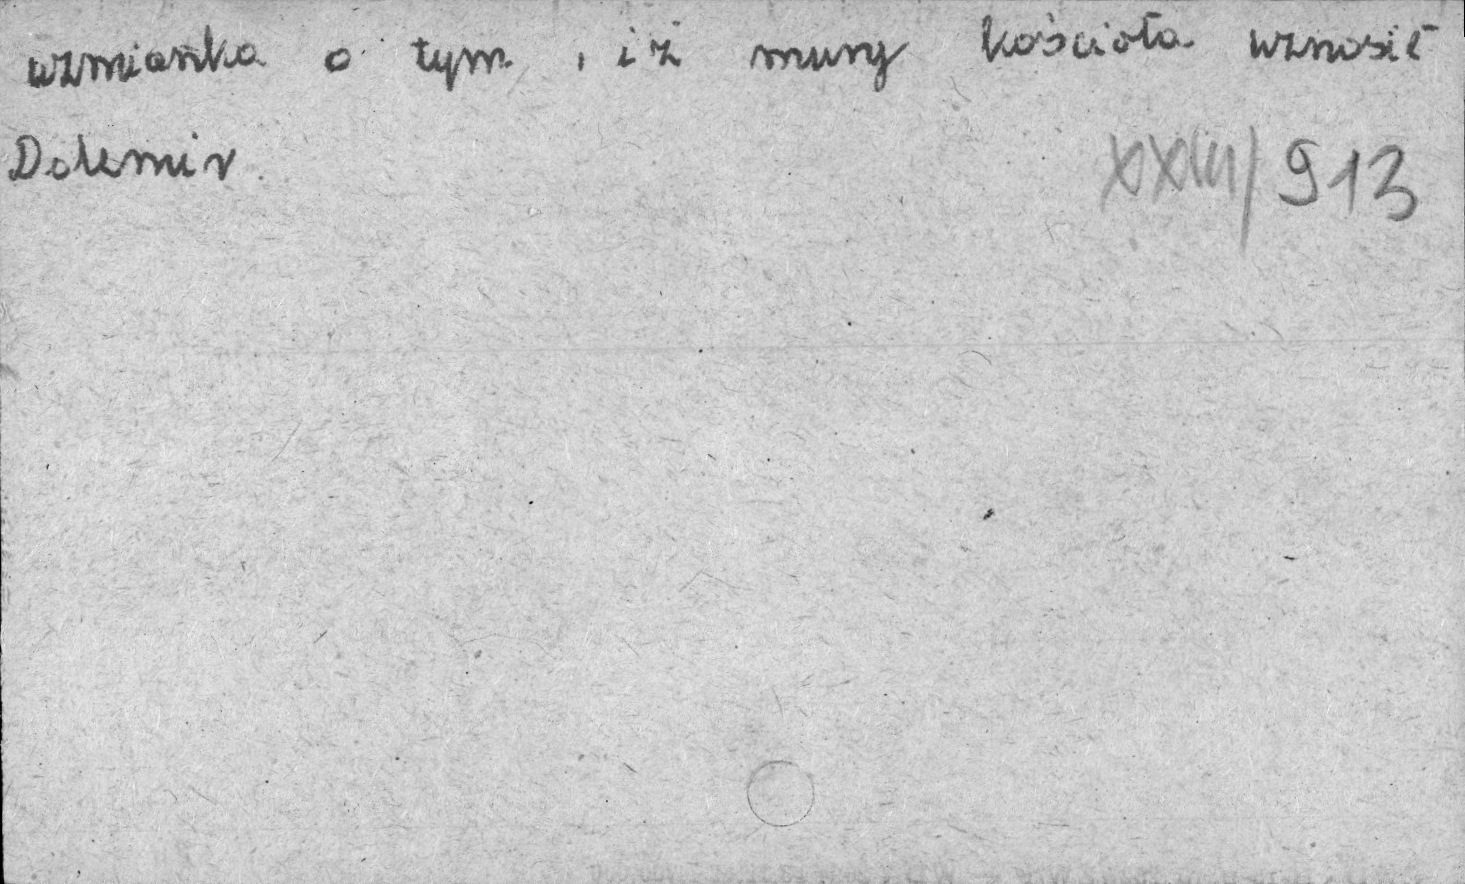 wzmianka o tym, iż mury kościoła wznosił
Dolemir.
XXIII/913